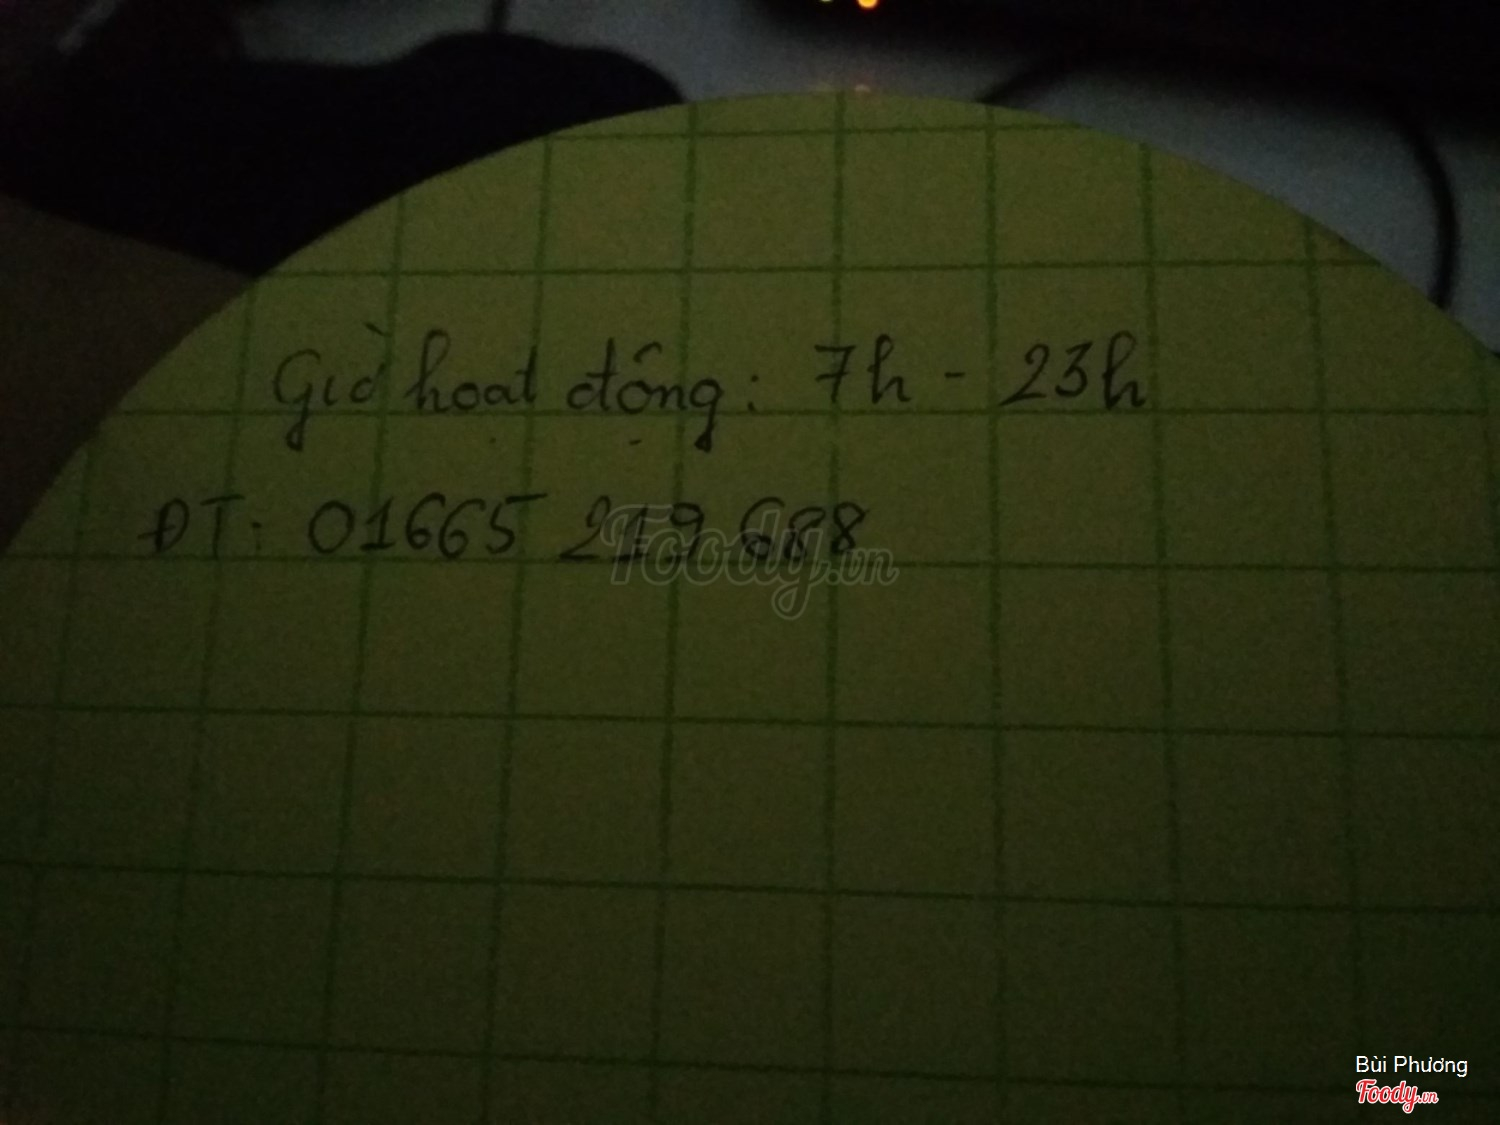 Giờ hoạt động: 7h - 23h
ĐT: 01665 219 688
Foody.vn
Bùi Phương
Foody.vn